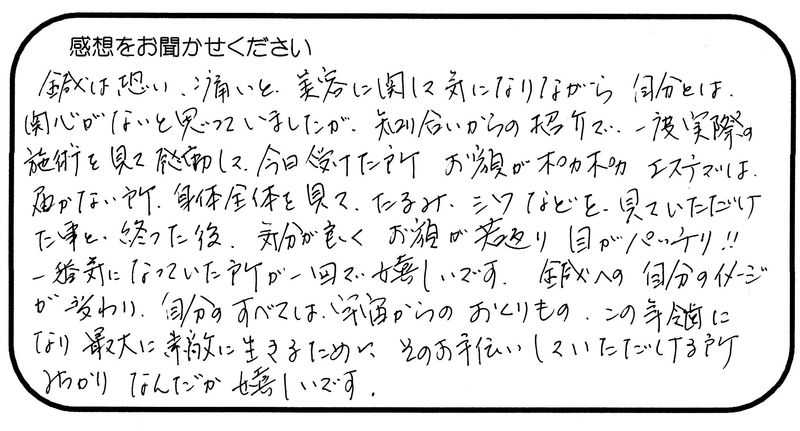 感想をお聞かせください
鍼は恐い、痛いと、美容に関して気になりながら 自分とは、
関心がないと思っていましたが、知り合いからの紹介で、一度実際の
施術を見て感動して、今日受けた所 お顔がポカポカ エステでは、
届かない所、身体全体を見て、たるみ、シワなどを、見ていただけ
た事と、終った後、気分が良く お顔が若返り 目がパッチリ!!
一番気になっていた所が一回で嬉しいです。 鍼への自分のイメージ
が変わり、自分のすべては、宇宙からのおくりもの、この年齢に
なり 最大に素敵に生きるために、そのお手伝いしていただける所
みつかり なんだか嬉しいです。